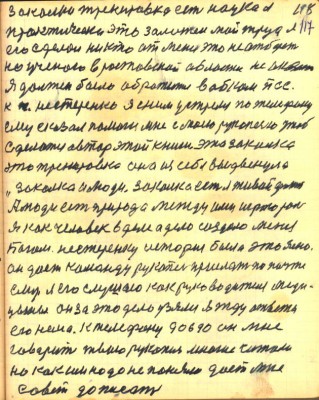 закалка тренировка ест наука я 118
практически это заложен мой труд я 117
его сделал никто от меня это не отберет
но ученого в ростовской области не
я должен был обратится в обком псс.
к т. нестеренко я с ним устрою по телефону
ему сказал помоги мне с моею рукописью чтоб
сделать автор этой книги. это закалка
это тренировка она из себя выдвенула
"закалка и люди. закалка ест живой
а люди ест природа между ими
я как человек в деле а дело создало меня
богом. нестеренку история была это ясно.
он дает команду рукапись прислат по почте
ему я его слушаю как руководителя
он за это дело взялся я жду ответа
его нема. к телефону довзо он мне
говорить твою рукапись многие читали
но как они подо не поняли дает мне
совет дописат